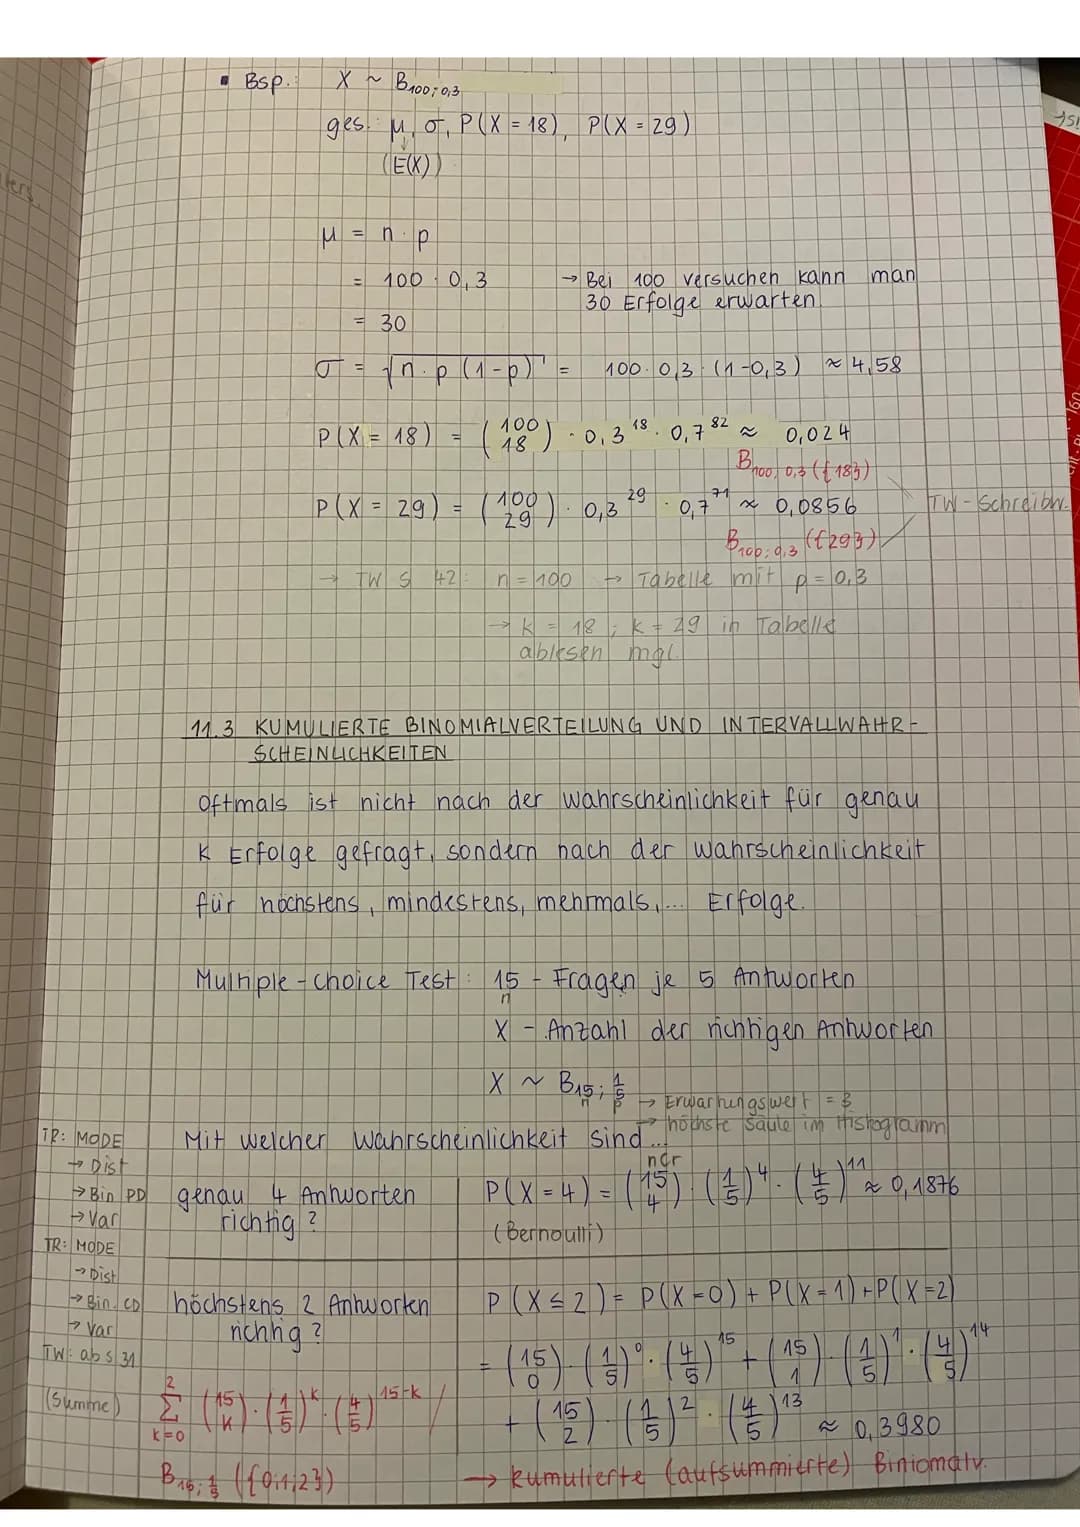 ▪ Bsp.: X ~ B100; 0,3
ges.: μ, σ, P(X = 18), P(X = 29)
(E(X))
μ = n · p
= 100 · 0,3 → Bei 100 versuchen kann man
30 Erfolge erwarten.
= 30
σ = √n · p (1-p) = 100 · 0,3 · (1-0,3) ≈ 4,58
P(X = 18) = (100 18) · 0,3^18 · 0,7^82 ≈ 0,024
B100; 0,3 ({18})
P(X = 29) = (100 29) · 0,3^29 · 0,7^71 ≈ 0,0856
TW-Schreibw.
B100; 0,3 ({29})
→ TW S 42: n = 100 → Tabelle mit p = 0,3
→ k = 18 ; k = 29 in Tabelle
ablesen mgl.
11.3 KUMULIERTE BINOMIALVERTEILUNG UND INTERVALLWAHR-
SCHEINLICHKEITEN
Oftmals ist nicht nach der Wahrscheinlichkeit für genau
k Erfolge gefragt, sondern nach der Wahrscheinlichkeit
für höchstens, mindestens, mehrmals, ... Erfolge.
Multiple-choice Test: 15 - Fragen je 5 Antworten
n
X - Anzahl der richtigen Antworten
X ~ B15; 1/5
n p
→ Erwartungswert = 3
→ höchste Säule im Histogramm
Mit welcher Wahrscheinlichkeit sind...
TR: MODE
→ Dist
→ Bin PD
→ Var
genau 4 Antworten
richtig?
nCr
P(X = 4) = (15 4) · (1/5)^4 · (4/5)^11 ≈ 0,1876
(Bernoulli)
TR: MODE
→ Dist
→ Bin. CD
→ Var
TW: ab S 31
(Summe)
höchstens 2 Antworten
richtig?
P(X ≤ 2) = P(X = 0) + P(X = 1) + P(X = 2)
= (15 0) · (1/5)^0 · (4/5)^15 + (15 1) · (1/5)^1 · (4/5)^14
+ (15 2) · (1/5)^2 · (4/5)^13 ≈ 0,3980
2 Σ k=0 (15 k) · (1/5)^k · (4/5)^15-k /
B15; 1/5 ({0;1;2})
→ kumulierte (aufsummierte) Biniomalv.